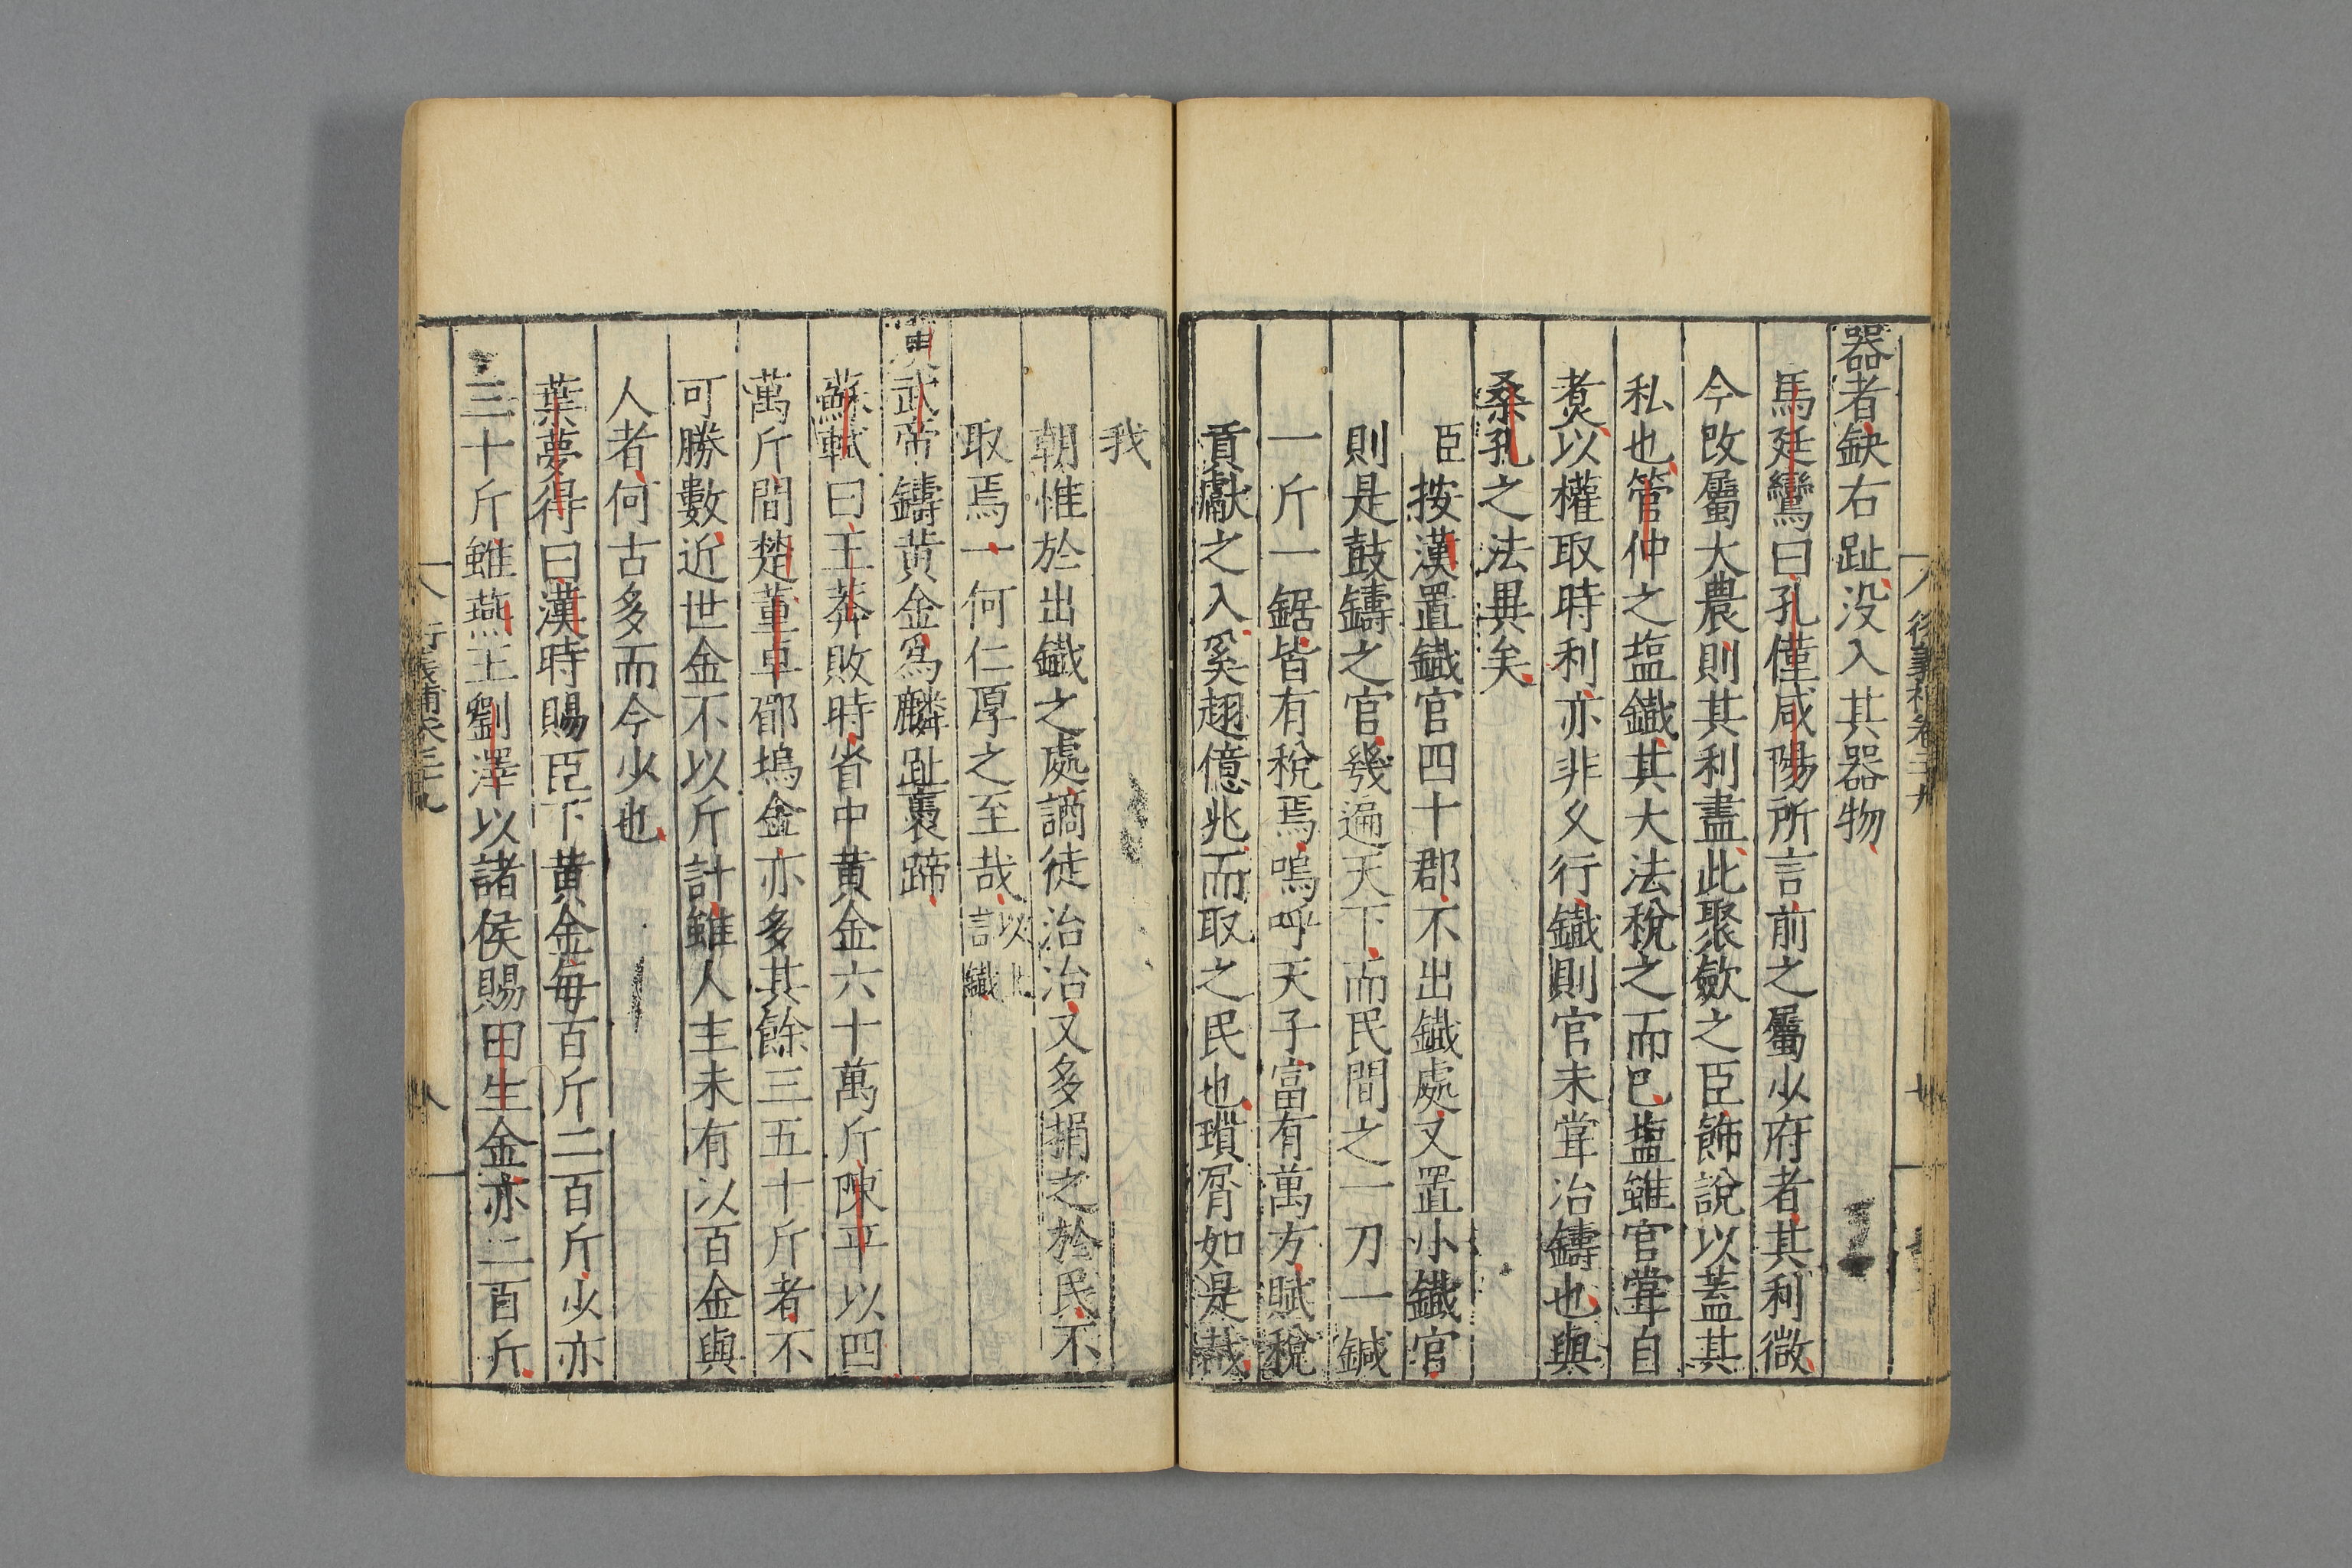 器者缺右趾没入其器物
馬廷鸞曰孔僅咸陽所言前之屬少府者其利微
今改屬大農則其利盡此聚斂之臣飾說以蓋其
私也管仲之塩鐵其大法稅之而已塩雖官甞自
煮以權取時利亦非久行鐵則官未甞冶鑄也與
桑孔之法異矣
臣按漢置鐵官四十郡不出鐵處又置小鐵官
則是鼓鑄之官幾遍天下而民間之一刀一鍼
一斤一鋸皆有稅焉嗚呼天子富有萬方賦稅
貢獻之入奚趐億兆而取之民也瑣屑如是哉
我
朝惟於出鐵之處謫徒治冶又多捐之於民不
取焉一何仁厚之至哉以上言鐵
漢武帝鑄黃金爲麟趾褭蹄
蘇軾曰王莽敗時省中黃金六十萬斤陳平以四
萬斤間楚董卓郿塢金亦多其餘三五十斤者不
可勝數近世金不以斤計雖人主未有以百金與
人者何古多而今少也
葉夢得曰漢時賜臣下黃金每百斤二百斤少亦
三十斤雖燕王劉澤以諸侯賜田生金亦二百斤